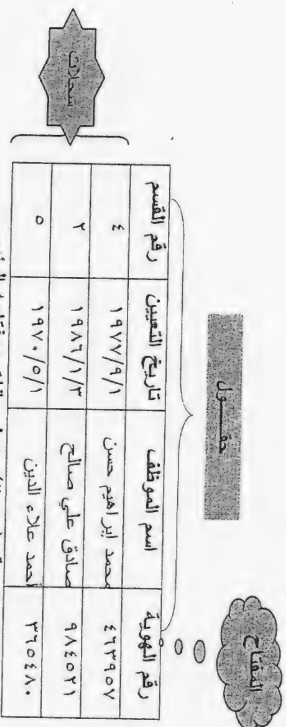 المفتاح
حقول
رقم الهوية اسم الموظف تاريخ التعيين رقم القسم
٤٦٣٩٥٧ محمد ابراهيم حسن ١٩٧٧/٩/١ ٤
٩٨٤٥٢١ صادق علي صالح ١٩٨٦/١/٣ ٢
٣٦٥٤٨٠ أحمد علاء الدين ١٩٧٠/٥/١ ٥
سجلات